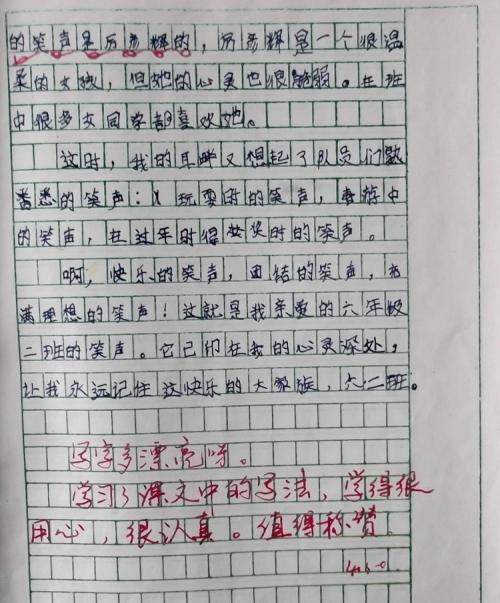 的笑声是历彦辉的,历彦辉是一个很温
柔的女孩,但她的心灵也很脆弱。在班
中很多女同学都喜欢她。
这时,我的耳畔又想起了队员们熟
悉的笑声:玩耍时的笑声,春游中
的笑声,在过年时得奖时的笑声。
啊,快乐的笑声,团结的笑声,充
满理想的笑声!这就是我亲爱的六年级
二班的笑声。它已印在我的心灵深处,
让我永远记住这快乐的大家族,六二班。
写字多漂亮呀。
学习了课文中的写法,学得很
用心,很认真。值得称赞